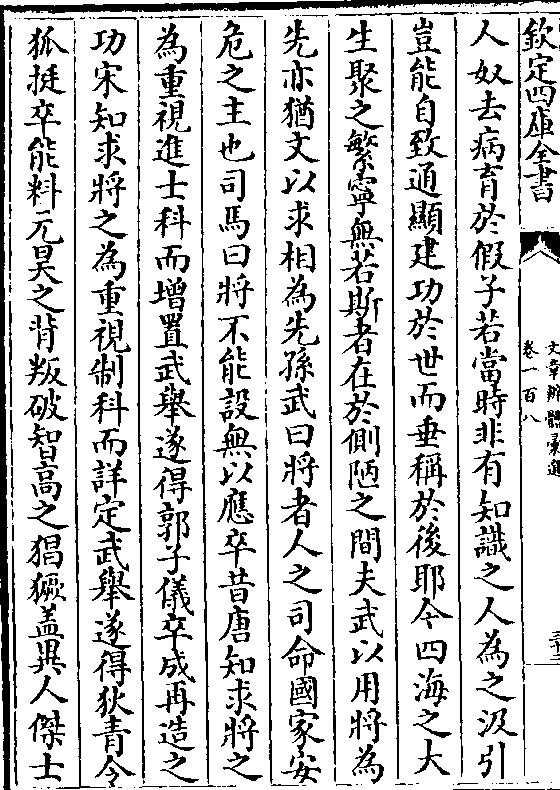 欽定四庫全書
文章辨體彙選
卷一百八
人奴去病育於假子若當時非有知識之人為之汲引
豈能自致通顯建功於世而垂稱於後耶今四海之大
生聚之繁寧無若斯者在於側陋之間夫武以用將為
先亦猶文以求相為先孫武曰將者人之司命國家安
危之主也司馬曰將不能設無以應卒昔唐知求將之
為重視進士科而增置武舉遂得郭子儀卒成再造之
功宋知求將之為重視制科而詳定武舉遂得狄青令
狐挺卒能料元昊之背叛破智高之猖獗盖異人傑士